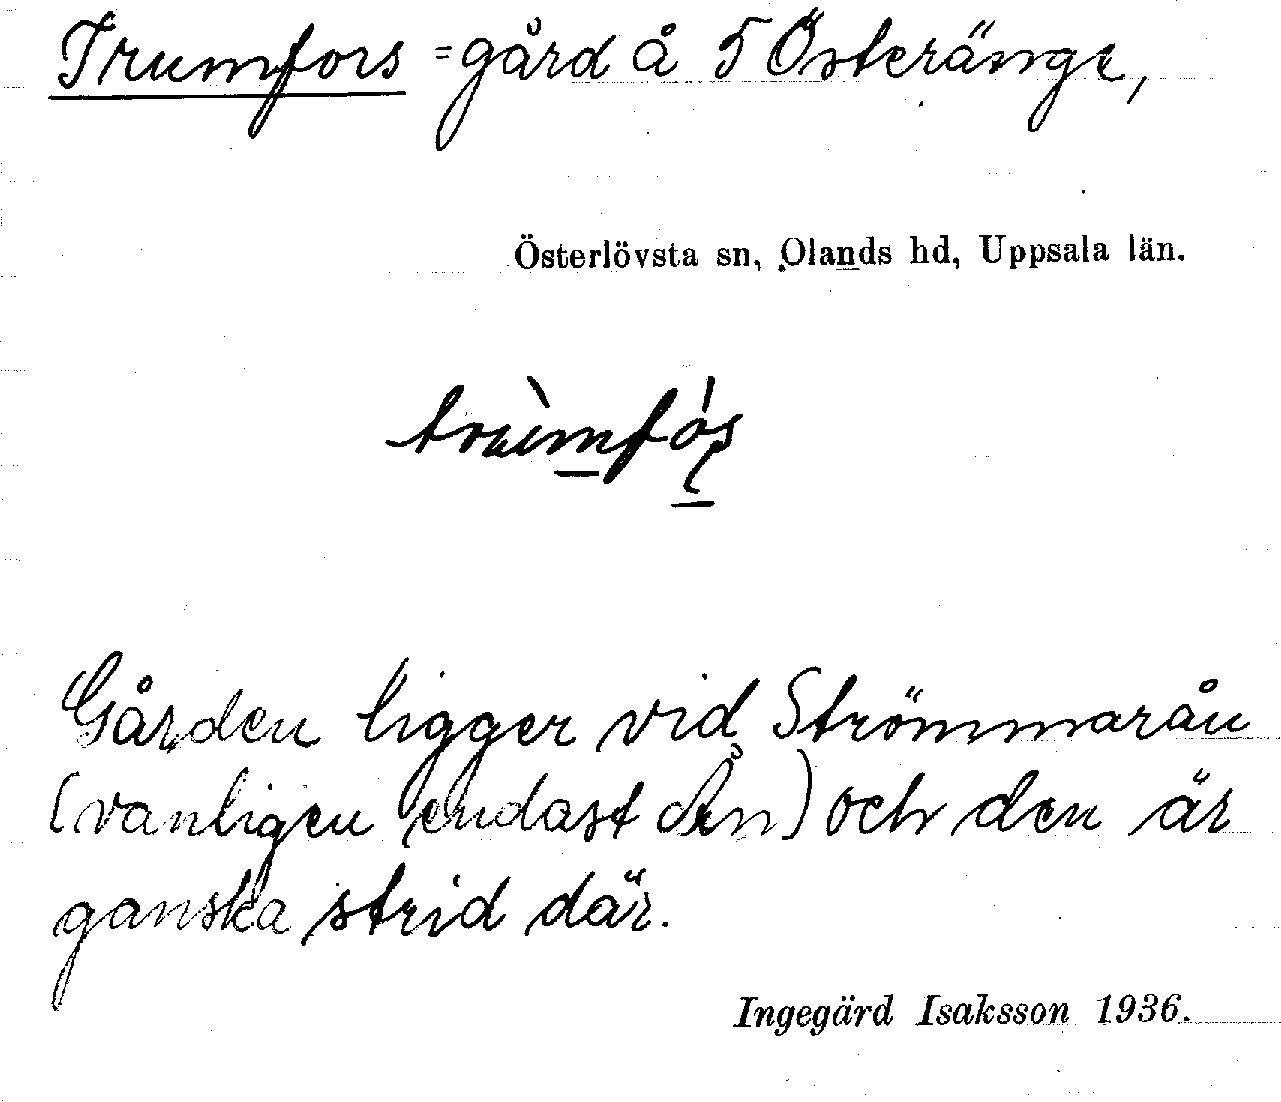 Trumfors = gård å 5 Österänge,
Österlövsta sn, Olands hd, Uppsala län.
Gården ligger vid Strömmarån
(vanligen endast Ån) och den är
ganska strid där.
Ingegärd Isaksson 1936.